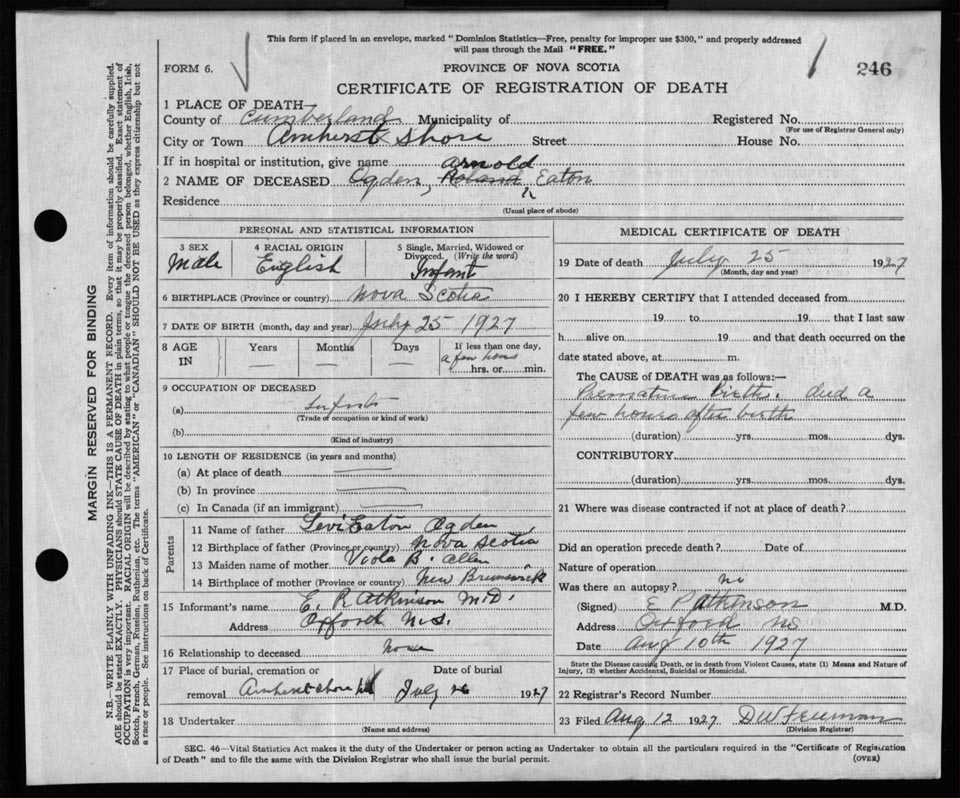 This form if placed in an envelope, marked "Dominion Statistics—Free, penalty for improper use $300," and properly addressed
will pass through the Mail "FREE."
FORM 6.
PROVINCE OF NOVA SCOTIA
246
CERTIFICATE OF REGISTRATION OF DEATH
1 PLACE OF DEATH—
County of Cumberland Municipality of Registered No.
(For use of Registrar General only)
City or Town Amherst Shore Street House No.
If in hospital or institution, give name
Arnold
2 NAME OF DECEASED Ogden, Roland, Eaton
Residence
(Usual place of abode)
PERSONAL AND STATISTICAL INFORMATION
3 SEX 4 RACIAL ORIGIN 5 Single, Married, Widowed or
Divorced. (Write the word)
Male English Infant
6 BIRTHPLACE (Province or country) Nova Scotia
7 DATE OF BIRTH (month, day and year) July 25 1927
8 AGE Years Months Days If less than one day,
IN — — — a few hours
hrs. or min.
9 OCCUPATION OF DECEASED
(a) Infant
(Trade or occupation or kind of work)
(b)
(Kind of industry)
10 LENGTH OF RESIDENCE (in years and months)
(a) At place of death —
(b) In province —
(c) In Canada (if an immigrant) —
Parents
11 Name of father Levi Eaton Ogden
12 Birthplace of father (Province or country) Nova Scotia
13 Maiden name of mother Viola B. Allen
14 Birthplace of mother (Province or country) New Brunswick
15 Informant's name E. P. Atkinson M.D.
Address Oxford N.S.
16 Relationship to deceased none
17 Place of burial, cremation or Date of burial
removal Amherst Shore July 26 1927
18 Undertaker
(Name and address)
MEDICAL CERTIFICATE OF DEATH
19 Date of death July 25 1927
(Month, day and year)
20 I HEREBY CERTIFY that I attended deceased from
19 to 19 that I last saw
h alive on 19 and that death occurred on the
date stated above, at m.
The CAUSE of DEATH was as follows:—
Premature birth. died a
few hours after birth
(duration) yrs. mos. dys.
CONTRIBUTORY
(duration) yrs. mos. dys.
21 Where was disease contracted if not at place of death?
Did an operation precede death? Date of
Nature of operation
Was there an autopsy? no
(Signed) E P Atkinson M.D.
Address Oxford NS
Date Aug 10th 1927
State the Disease causing Death, or in death from Violent Causes, state (1) Means and Nature of
Injury, (2) whether Accidental, Suicidal or Homicidal.
22 Registrar's Record Number
23 Filed Aug 12 1927. D W Freeman
(Division Registrar)
SEC. 46—Vital Statistics Act makes it the duty of the Undertaker or person acting as Undertaker to obtain all the particulars required in the "Certificate of Registration
of Death" and to file the same with the Division Registrar who shall issue the burial permit.
(OVER)
MARGIN RESERVED FOR BINDING
N.B.—WRITE PLAINLY WITH UNFADING INK—THIS IS A PERMANENT RECORD. Every item of information should be carefully supplied.
AGE should be stated EXACTLY. PHYSICIANS should STATE CAUSE OF DEATH in plain terms, so that it may be properly classified. Exact statement of
OCCUPATION is very important. RACIAL ORIGIN will be described by stating to what people or tongue the deceased person belonged, whether English, Irish,
Scotch, French, German, Russian, Ruthenian, etc. The terms "AMERICAN" or "CANADIAN" SHOULD NOT BE USED as they express citizenship but not
a race or people. See instructions on back of Certificate.